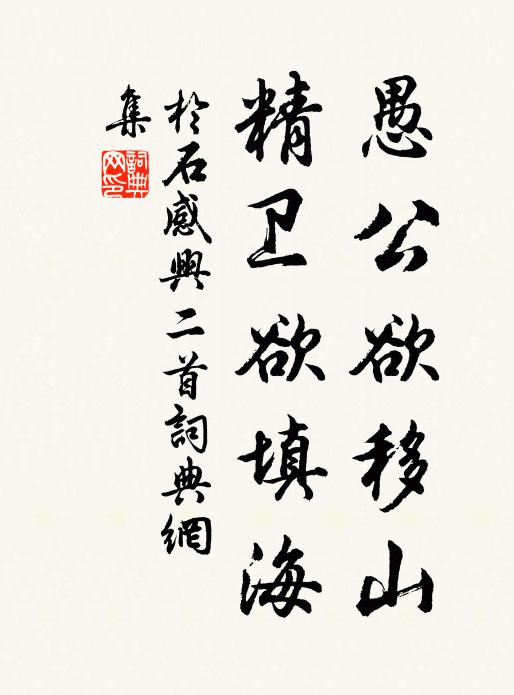 愚公欲移山
精卫欲填海
於石感興二首詞典網
集
詞典网印